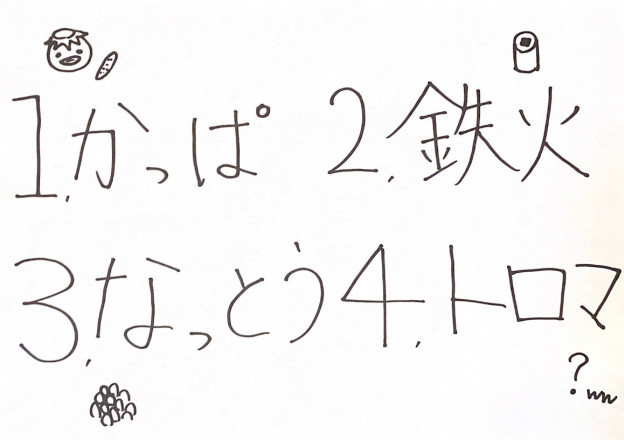 1.かっぱ 2.鉄火
3.なっとう 4.トロマ
?ww